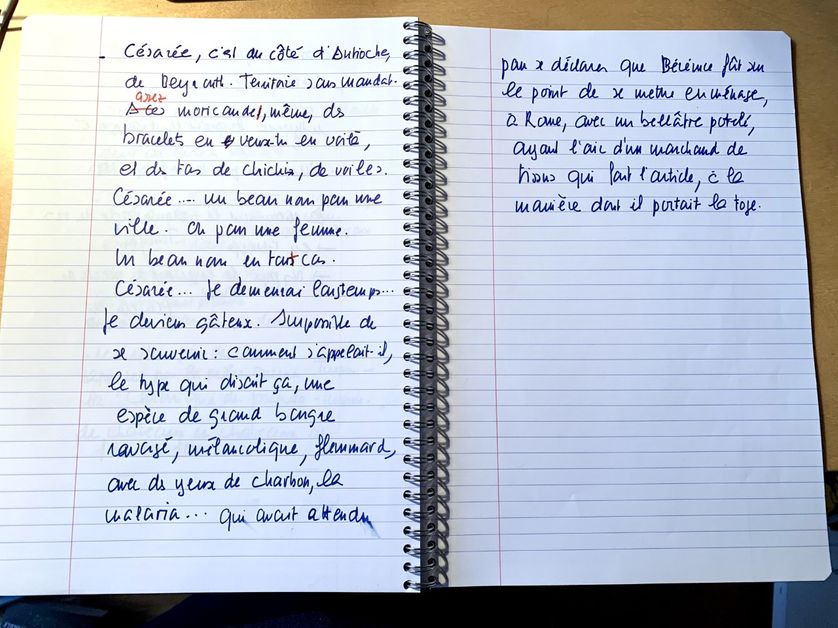 - Césarée, c'est du côté d'Antioche,
de Beyrouth. Territoire sous mandat.
assez
moricande, même, des
bracelets en veux-tu en voilà,
et des tas de chichis, de voiles.
Césarée.... un beau nom pour une
ville. Ou pour une femme.
Un beau nom en tout cas.
Césarée... Je demeurai longtemps...
Je deviens gâteux. Impossible de
se souvenir : comment s'appelait-il,
le type qui disait ça, une
espèce de grand bougre
ravagé, mélancolique, flemmard,
avec des yeux de charbon, la
malaria... qui avait attendu
pour se déclarer que Bérénice fût sur
le point de se mettre en ménage,
à Rome, avec un bellâtre potelé,
ayant l'air d'un marchand de
tissus qui fait l'article, à la
manière dont il portait la toge.